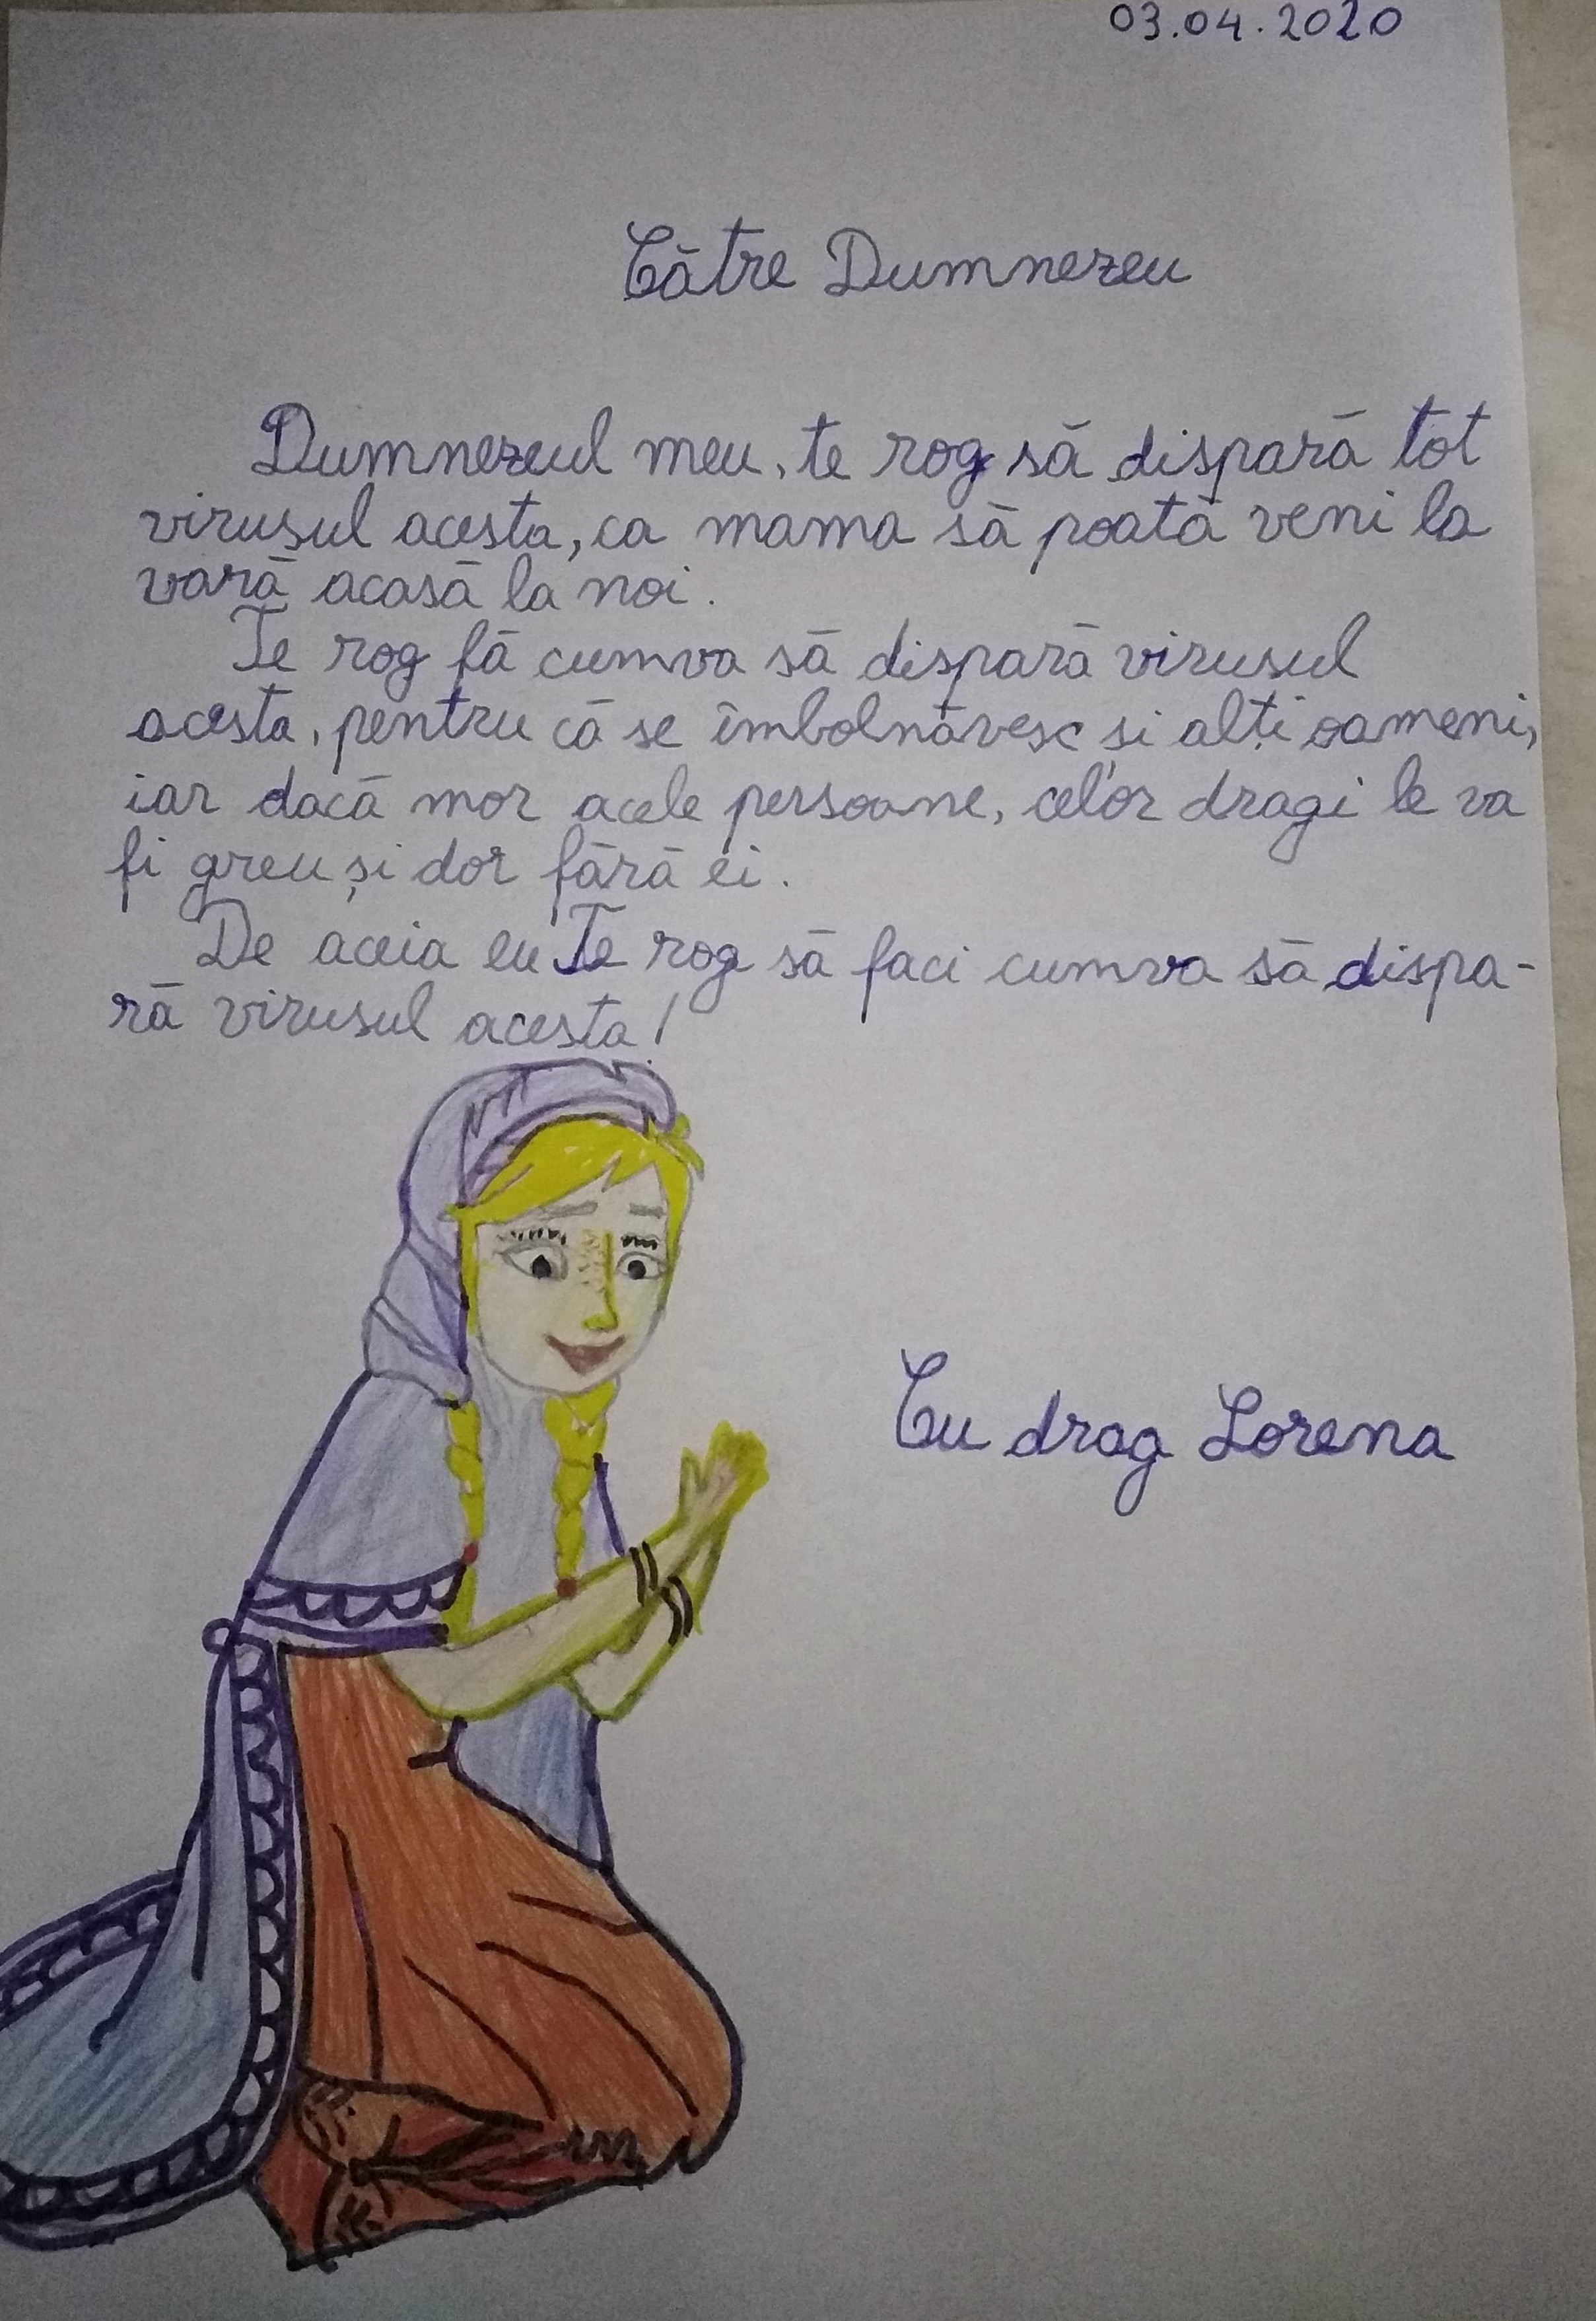 03.04.2020
Către Dumnezeu
Dumnezeul meu, te rog să dispară tot
virusul acesta, ca mama să poată veni la
vară acasă la noi.
Te rog fă cumva să dispară virusul
acesta, pentru că se îmbolnăvesc și alți oameni,
iar dacă mor acele persoane, celor dragi le va
fi greu și dor fără ei.
De aceia eu Te rog să faci cumva să dispa-
ră virusul acesta!
Cu drag Lorena